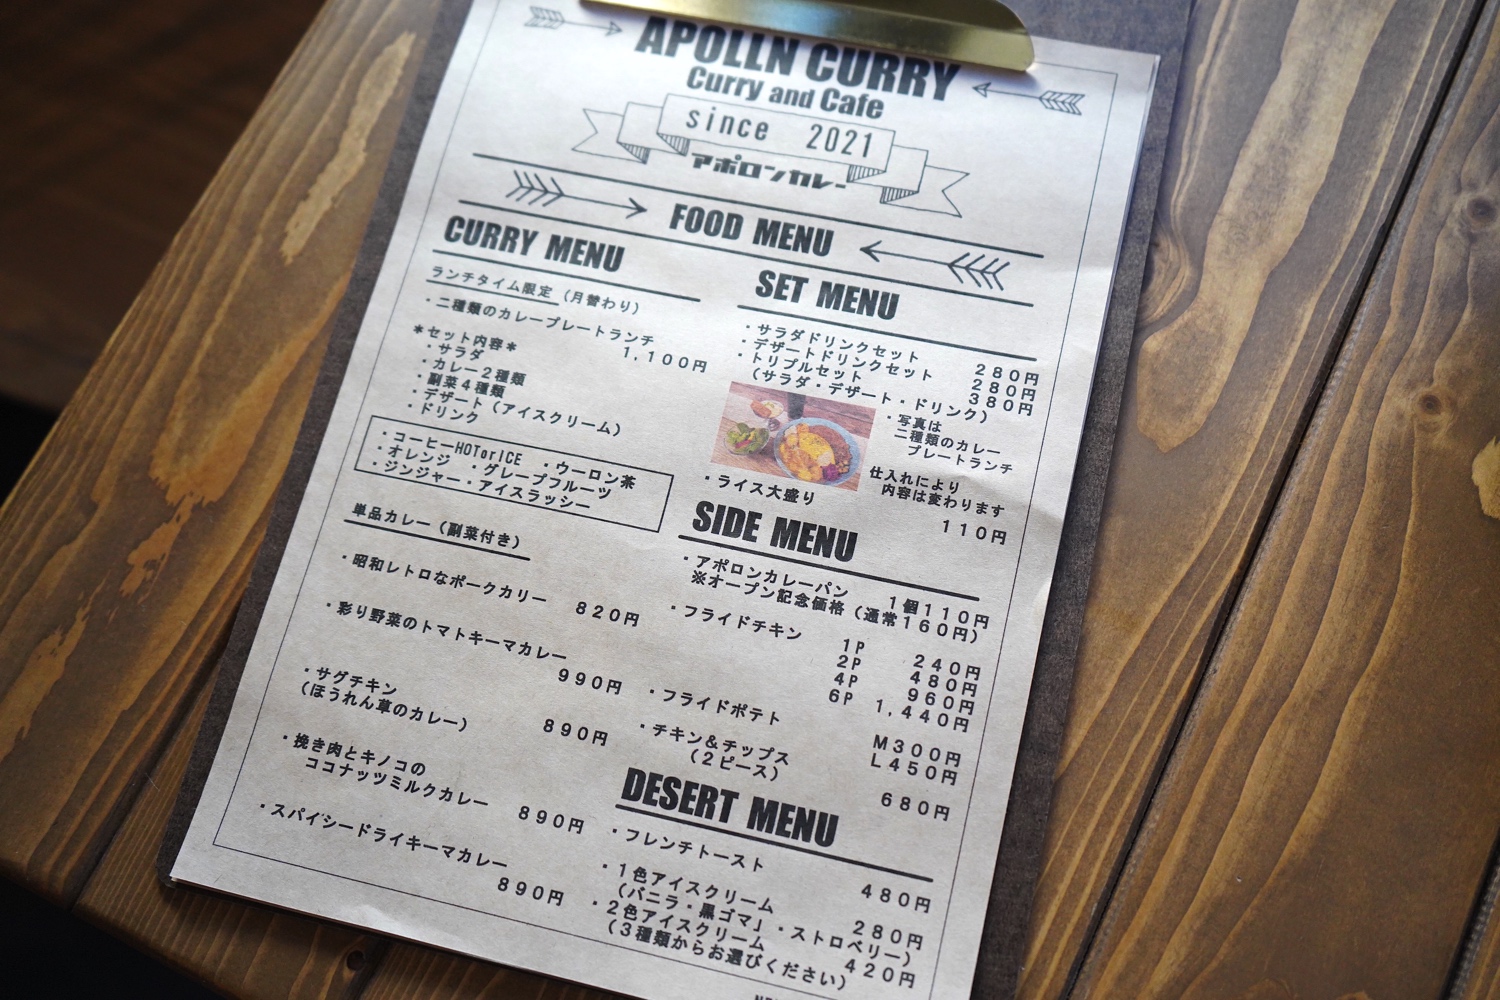 APOLLN CURRY
Curry and Cafe
since 2021
アポロンカレー
FOOD MENU
CURRY MENU
ランチタイム限定（月替わり）
・二種類のカレープレートランチ
1,100円
＊セット内容＊
・サラダ
・カレー２種類
・副菜４種類
・デザート（アイスクリーム）
・ドリンク
・コーヒーHOTorICE ・ウーロン茶
・オレンジ ・グレープフルーツ
・ジンジャー・アイスラッシー
単品カレー（副菜付き）
・昭和レトロなポークカリー
820円
・彩り野菜のトマトキーマカレー
990円
・サグチキン
（ほうれん草のカレー）
890円
・挽き肉とキノコの
ココナッツミルクカレー
890円
・スパイシードライキーマカレー
890円
SET MENU
・サラダドリンクセット 280円
・デザートドリンクセット 280円
・トリプルセット 380円
（サラダ・デザート・ドリンク）
・写真は
二種類のカレー
プレートランチ
仕入れにより
内容は変わります
・ライス大盛り
110円
SIDE MENU
・アポロンカレーパン 1個110円
※オープン記念価格（通常160円）
・フライドチキン
1P 240円
2P 480円
4P 960円
6P 1,440円
・フライドポテト
M300円
L450円
・チキン＆チップス
（２ピース）
680円
DESERT MENU
・フレンチトースト
480円
・１色アイスクリーム 280円
（バニラ・黒ゴマ」・ストロベリー）
・２色アイスクリーム 420円
（３種類からお選びください）